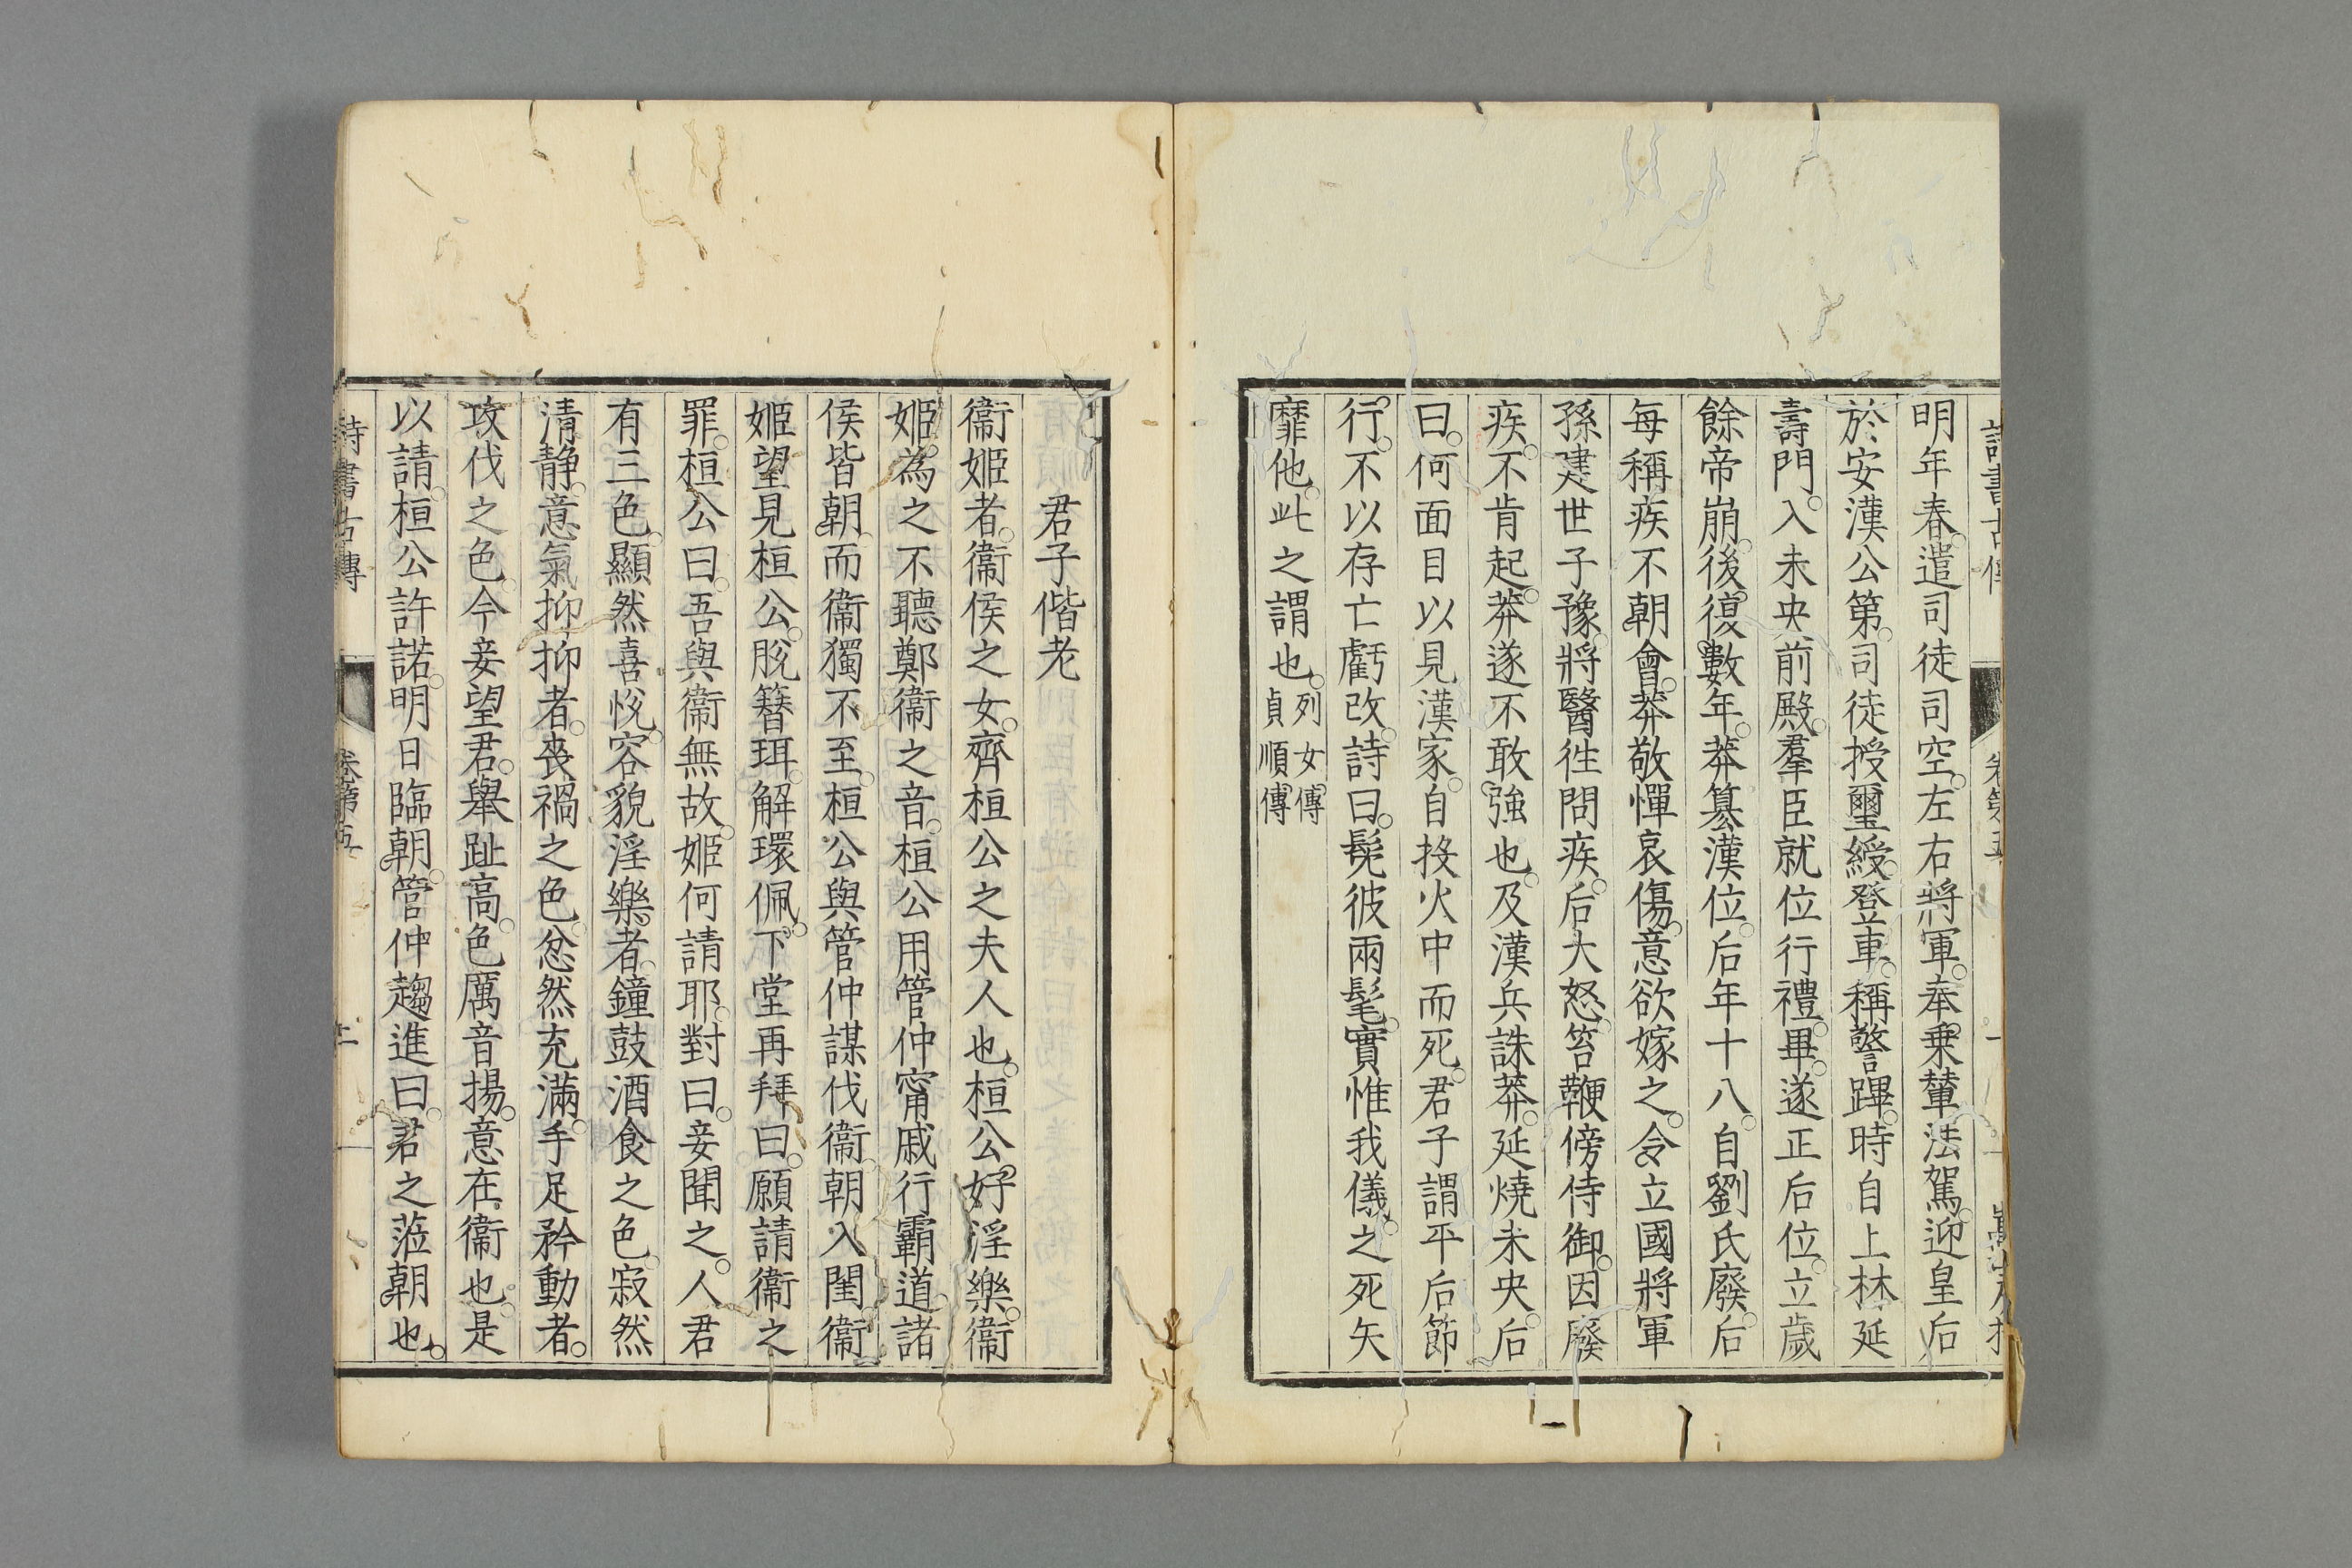 明年春遣司徒司空左右將軍奉乗輦法駕迎皇后
於安漢公第司徒授璽綬登車稱警蹕時自上林延
壽門入未央前殿羣臣就位行禮畢遂正后位立歲
餘帝崩後復數年莽篡漢位后年十八自劉氏廢后
每稱疾不朝會莽敬憚哀傷意欲嫁之令立國將軍
孫建世子豫將醫徃問疾后大怒笞鞭傍侍御因廢
疾不肯起莽遂不敢強也及漢兵誅莽延焼未央后
曰何面目以見漢家自投火中而死君子謂平后節
行不以存亡虧改詩曰髧彼兩髦實惟我儀之死矢
靡他此之謂也列女傳
貞順傳
君子偕老
衞姬者衞侯之女齊桓公之夫人也桓公好淫樂衞
姬為之不聽鄭衞之音桓公用管仲甯戚行霸道諸
侯皆朝而衞獨不至桓公與管仲謀伐衞朝入閨衞
姬望見桓公脫簪珥解環佩下堂再拜曰願請衞之
罪桓公曰吾與衞無故姬何請耶對曰妾聞之人君
有三色顯然喜悅容貌淫樂者鐘鼓酒食之色寂然
清静意氣抑抑者喪禍之色忿然充滿手足矜動者
攻伐之色今妾望君舉趾高色厲音揚意在衞也是
以請桓公許諾明日臨朝管仲趨進曰君之蒞朝也
詩書古傳
卷第五